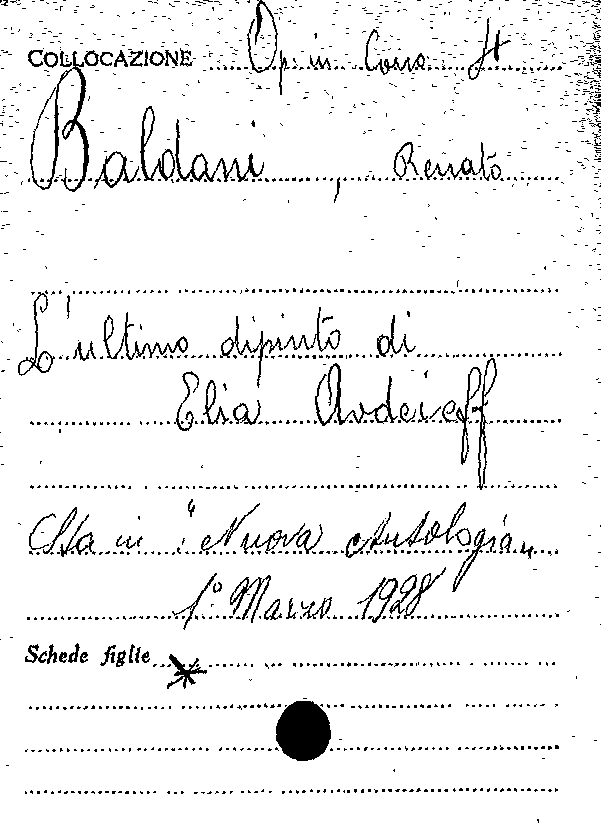 COLLOCAZIONE Op. in Corso St
Baldani, Renato
L'ultimo dipinto di
Elia Avdeieff
Sta in "Nuova Antologia„
1º Marzo 1928
Schede figlie